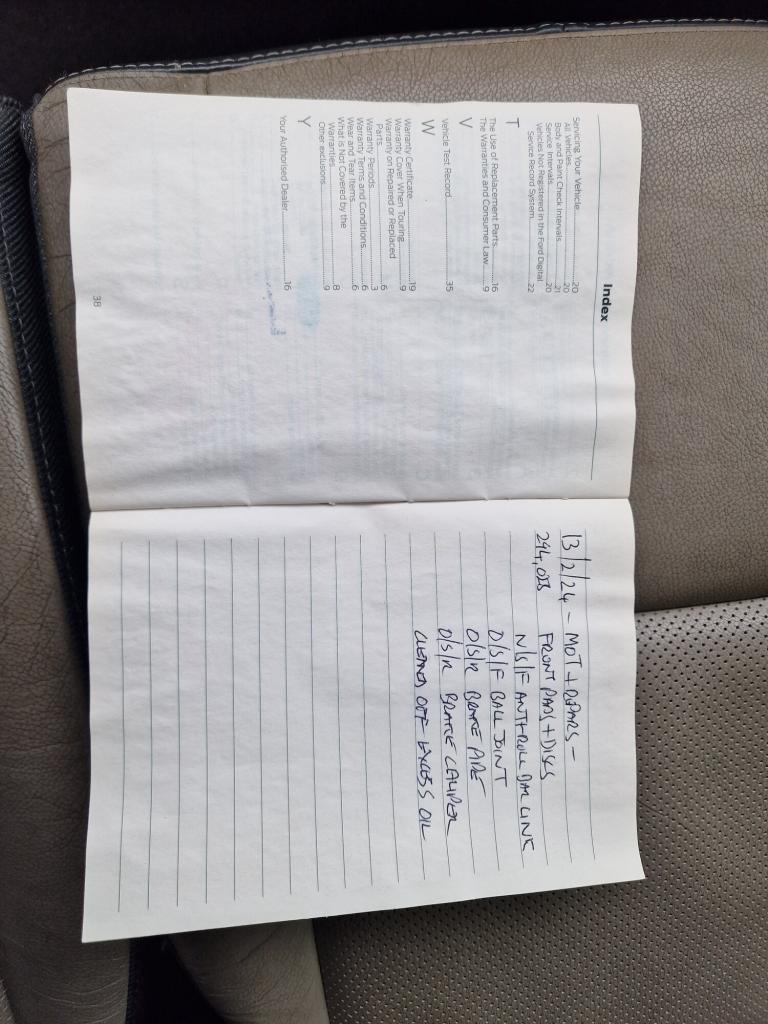 Index
Servicing Your Vehicle.....20
All Vehicles.....20
Body and Paint Check Intervals.....21
Service Intervals.....20
Vehicles Not Registered in the Ford Digital
Service Record System.....22
T
The Use of Replacement Parts.....16
The Warranties and Consumer Law.....9
V
Vehicle Test Record.....35
W
Warranty Certificate.....19
Warranty Cover When Touring.....9
Warranty on Repaired or Replaced
Parts.....6
Warranty Periods.....3
Warranty Terms and Conditions.....6
Wear and Tear Items.....6
What is Not Covered by the
Warranties.....8
Other exclusions.....9
Y
Your Authorised Dealer.....16
38
13/2/24 - MOT + REPAIRS -
294,028 FRONT PADS + DISCS
N/S/F ANTI-ROLL BAR LINK
O/S/F BALL JOINT
O/S/R BRAKE PIPE
O/S/R BRAKE CALIPER
CLEANED OFF EXCESS OIL